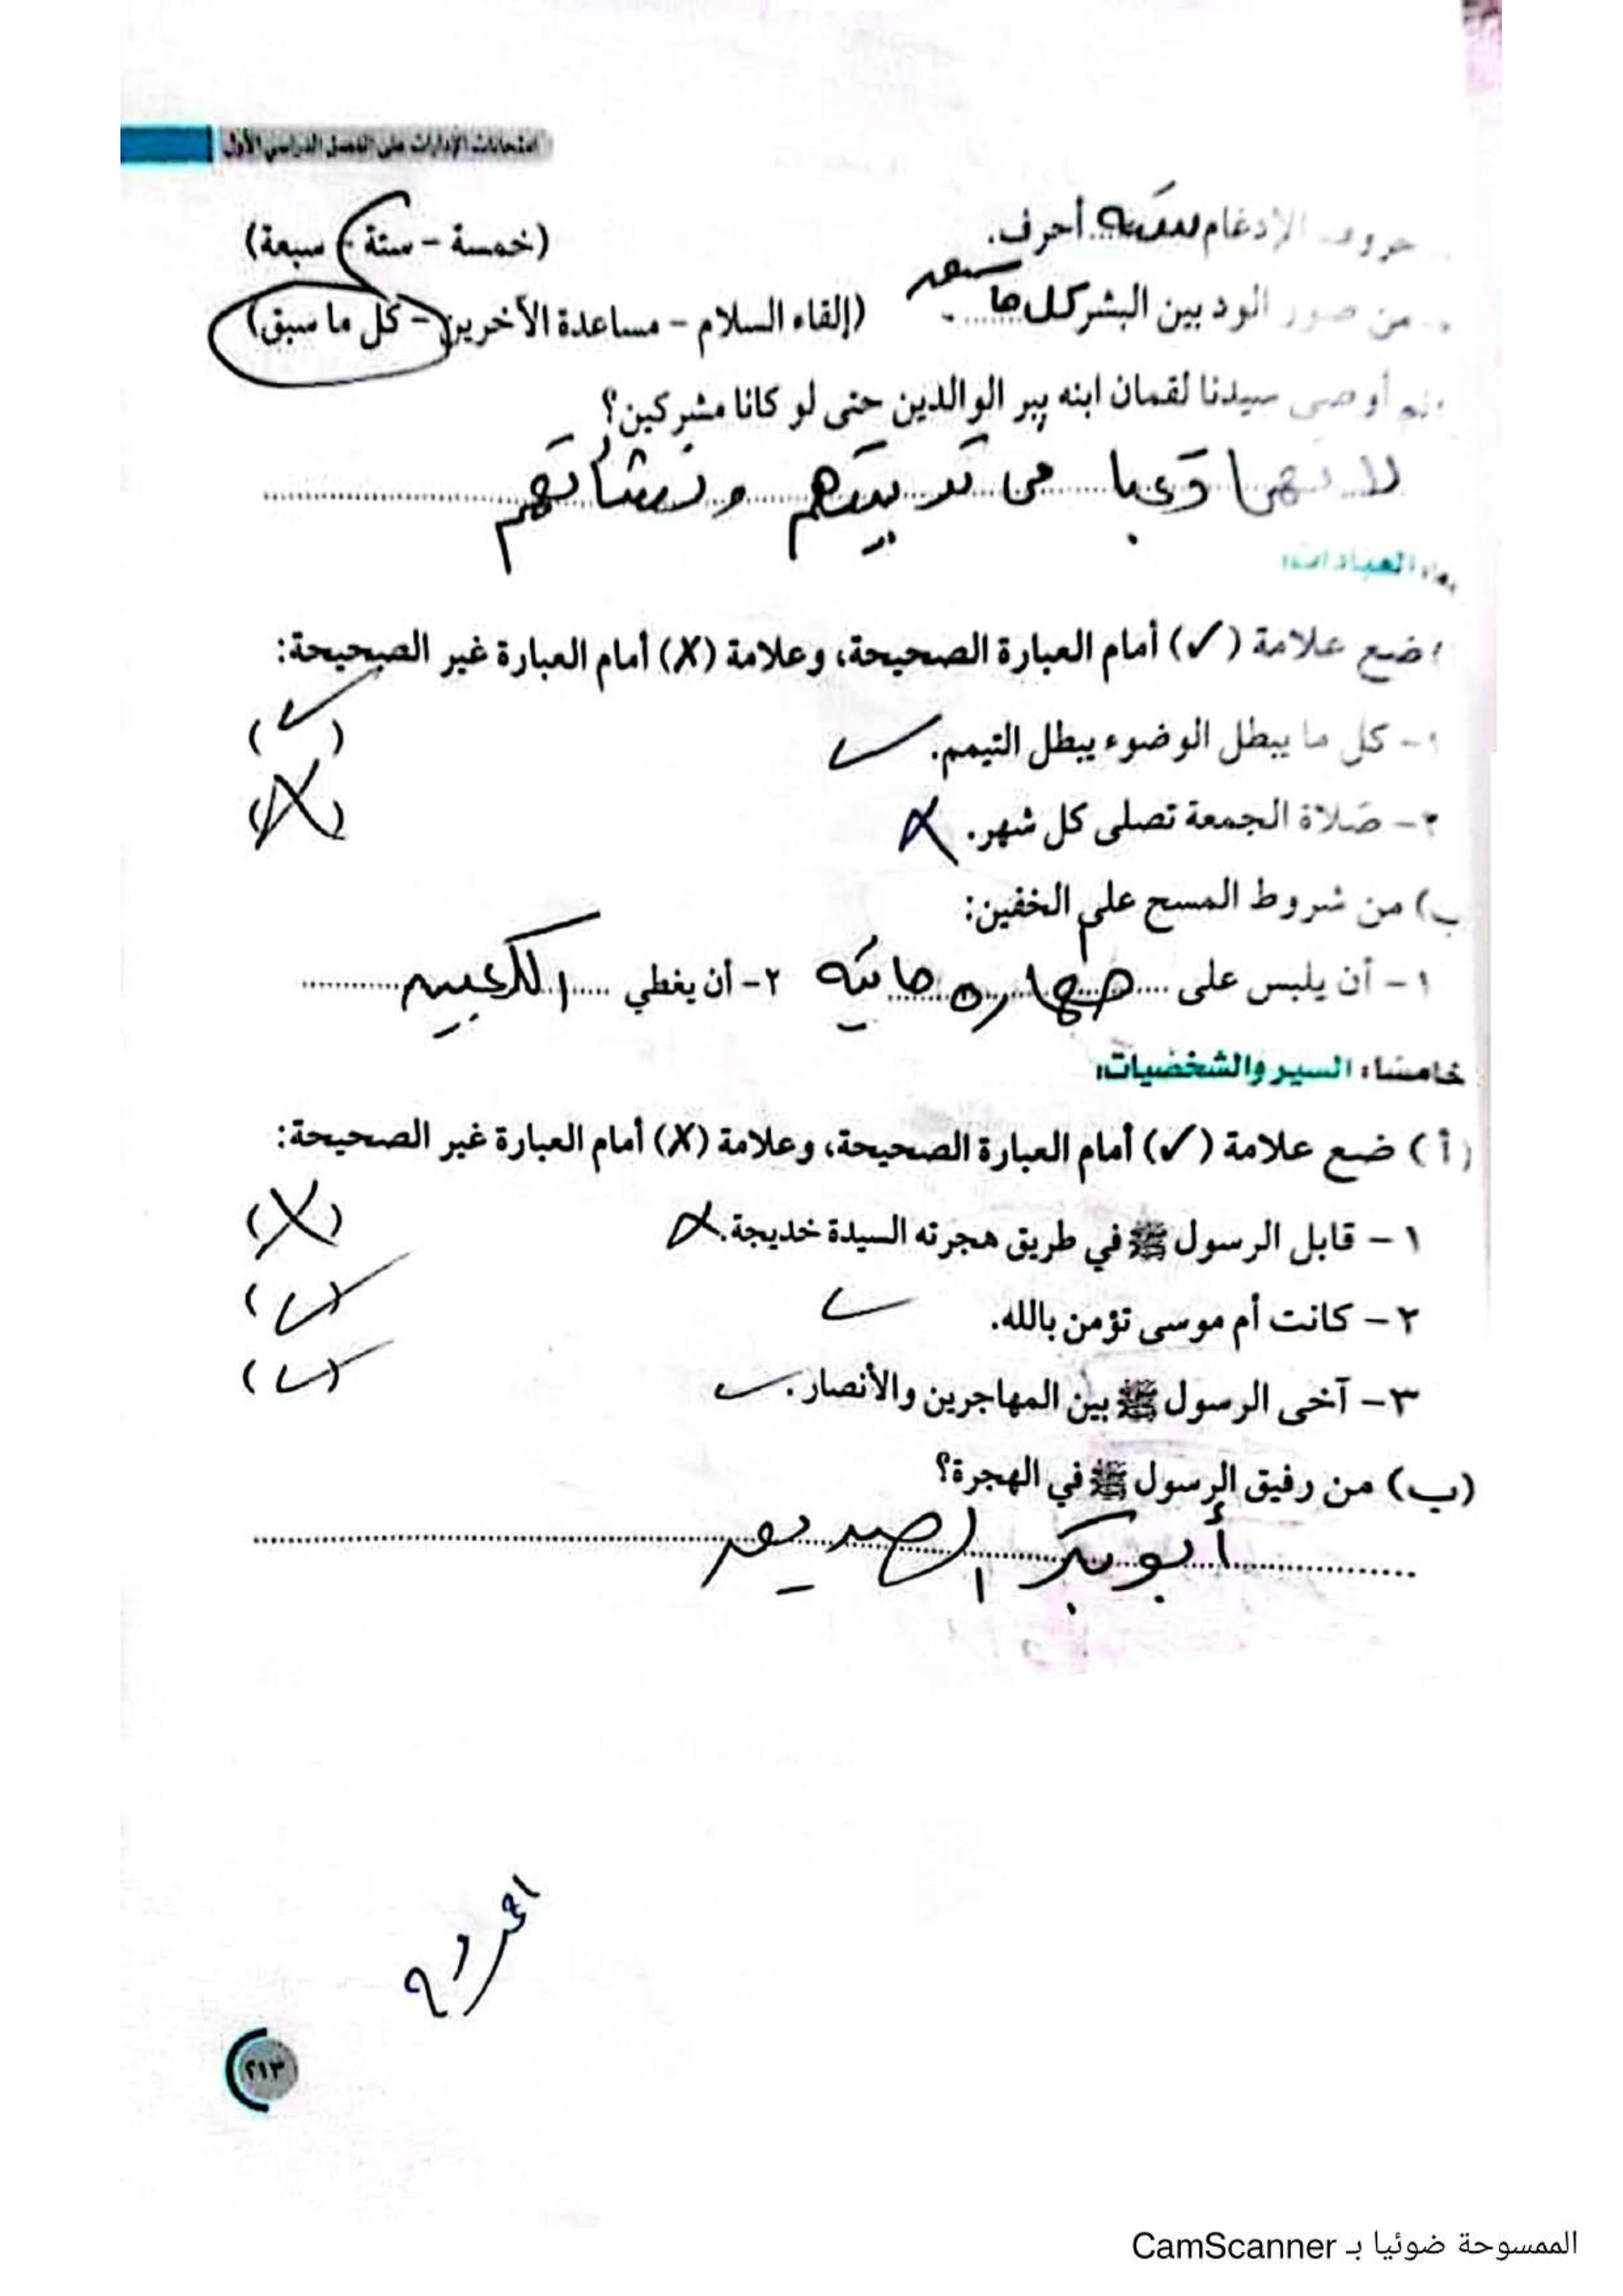 امتحانات الإدارات على الفصل الدراسي الأول
حروف الإدغام ستة أحرف. (خمسة - ستة - سبعة)
- من صور الود بين البشر كل ما سبق. (إلقاء السلام - مساعدة الآخرين - كل ما سبق)
لم أوصى سيدنا لقمان ابنه ببر الوالدين حتى لو كانا مشركين؟
لانهما تعبا في تربيتهم ونشأتهم
العبادات:
ضع علامة (✓) أمام العبارة الصحيحة، وعلامة (X) أمام العبارة غير الصحيحة:
١- كل ما يبطل الوضوء يبطل التيمم. ✓ (✓)
٢- صلاة الجمعة تصلى كل شهر. X (X)
ب) من شروط المسح على الخفين:
١- أن يلبس على طهارة مائية ٢- أن يغطي الكعبين
خامسًا: السير والشخصيات:
(أ) ضع علامة (✓) أمام العبارة الصحيحة، وعلامة (X) أمام العبارة غير الصحيحة:
١- قابل الرسول ﷺ في طريق هجرته السيدة خديجة. X (X)
٢- كانت أم موسى تؤمن بالله. ✓ (✓)
٣- آخى الرسول ﷺ بين المهاجرين والأنصار. ✓ (✓)
(ب) من رفيق الرسول ﷺ في الهجرة؟
أبو بكر الصديق
٢١٣
الممسوحة ضوئيا بـ CamScanner